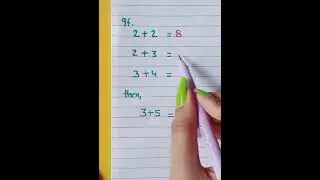 If,
2+2 = 8
2+3 =
3+4 =
then,
3+5 =